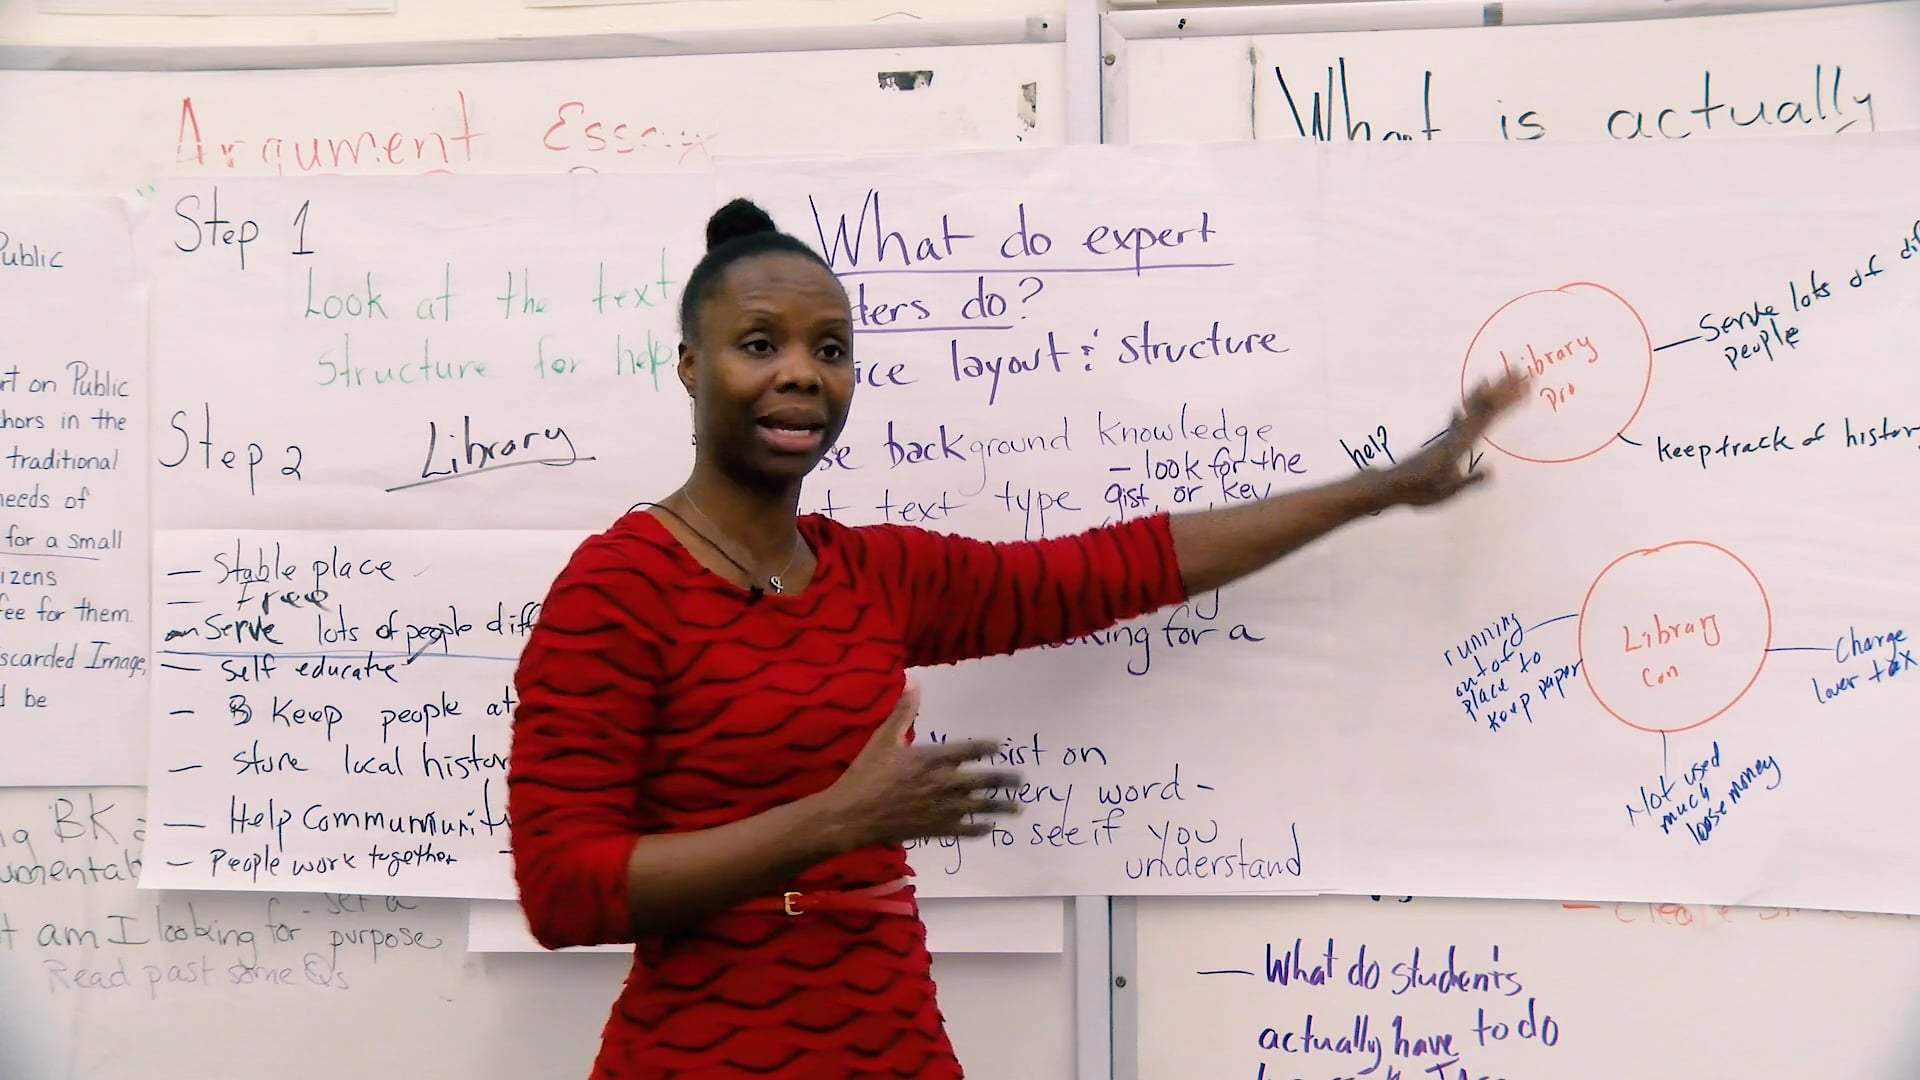 Argument Essay
What is actually
Step 1
Look at the text
structure for help
Step 2 Library
— Stable place
— Free
— Serve lots of people diff
— Self educate
— Keep people at
— Store local histor
— Help Communit
— People work together
Public
rt on Public
hors in the
traditional
needs of
for a small
izens
ee for them.
scarded Image,
d be
BK
umental
t am I looking for set a
purpose
Read past some Qs
What do expert
ters do?
ice layout & structure
se background knowledge
— look for the
text type gist, or key
king for a
sist on
every word -
to see if you
understand
Library
Pro
Serve lots of dif
people
Keep track of histor
help?
Library
Con
running
out of
place to
keep paper
Not used
much
loose money
Charge
lover tax
— What do students
actually have to do